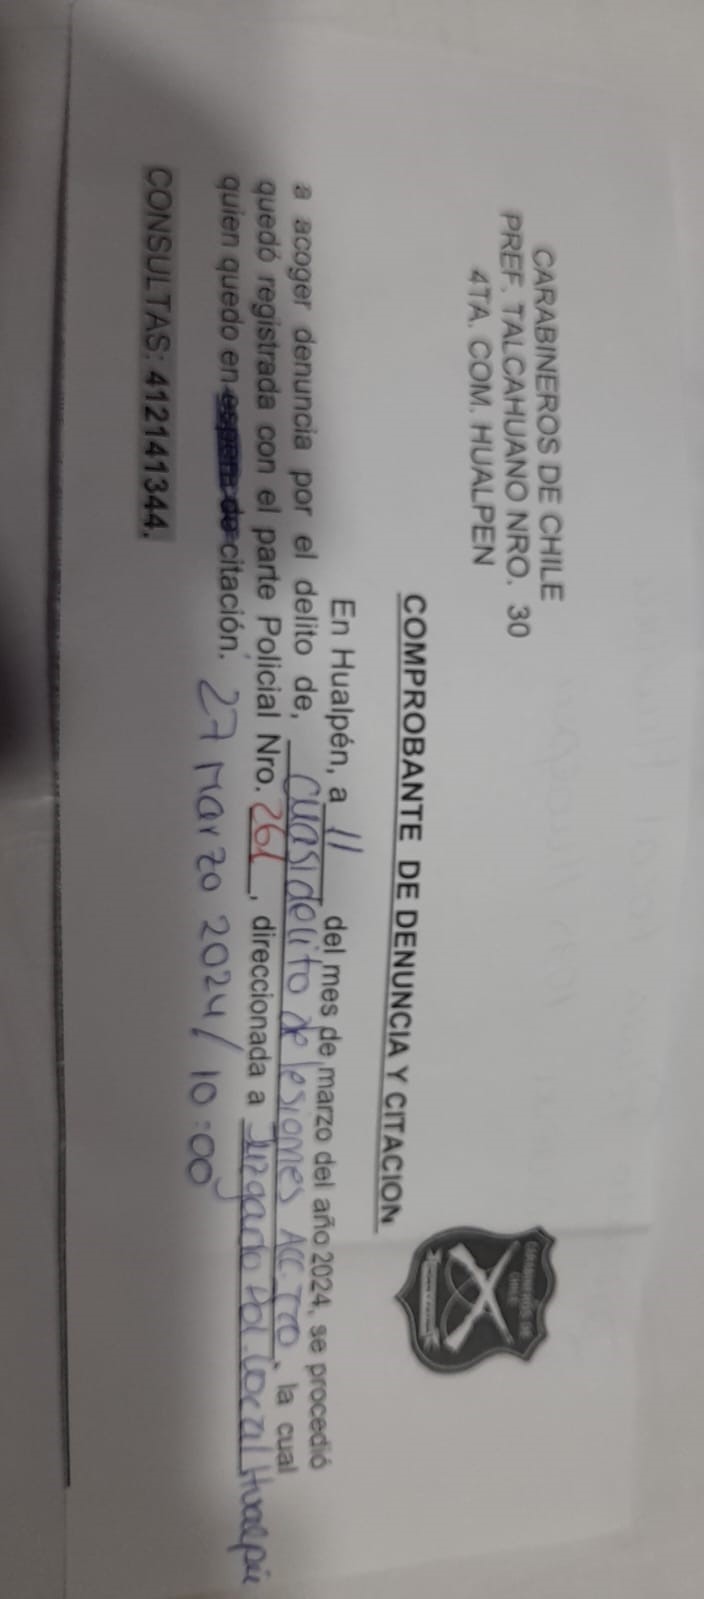 CARABINEROS DE CHILE
PREF. TALCAHUANO NRO. 30
4TA. COM. HUALPEN
CARABINEROS DE CHILE
COMPROBANTE DE DENUNCIA Y CITACION
En Hualpén, a 11 del mes de marzo del año 2024, se procedió
a acoger denuncia por el delito de, cuasidelito de lesiones ACC. TTO, la cual
quedó registrada con el parte Policial Nro. 261, direccionada a Juzgado Pol. Local Hualpén
quien quedo en espera de citación. 27 Marzo 2024 / 10:00
CONSULTAS: 412141344.